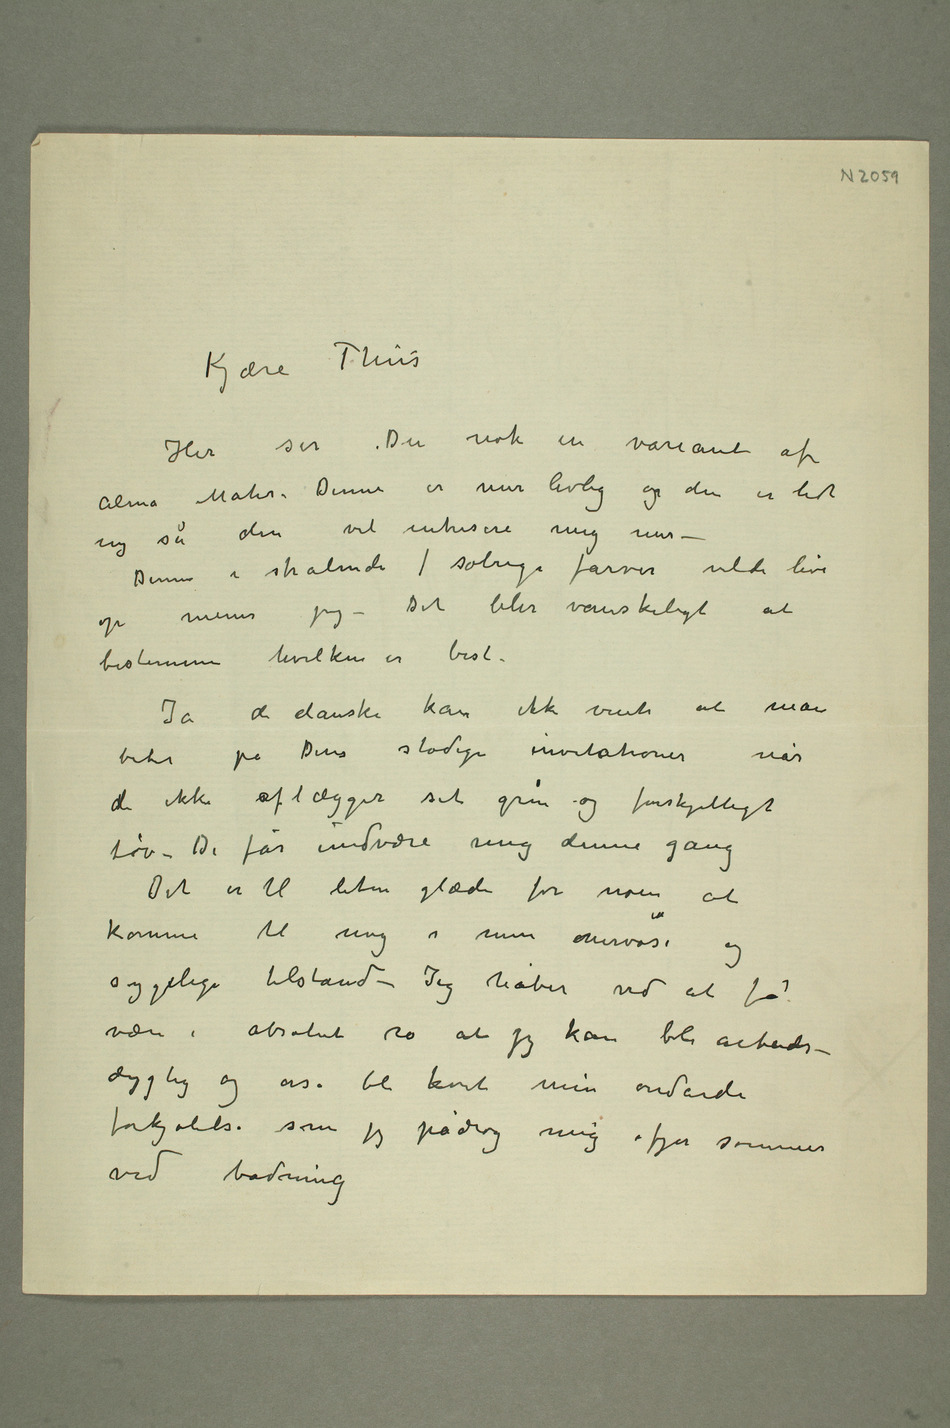 N 2059
Kjære Thiis
Her ser Du nok en variant af
alma Mater. Denne er mer livlig og den er lidt
ny så den vil intresere mig mer –
Denne i strålende / solrige farver vilde live
op mener jeg – Det blir vanskeligt at
bestemme hvilken er best.
Ja de danske kan ikke vente at man
biter på Deres stadige invitationer når
de ikke aflægger sit grin og forskjelligt
tøv – De får undvære mig denne gang
Det er til liten glæde for noen at
komme til mig i min nervøse og
sygelige tilstand – Jeg håber ved at få
være i absolut ro at jeg kan bli arbeids–
dygtig og os. bli kvit min ondarde
forkjølelse som jeg pådrog mig ifjor sommer
ved badning